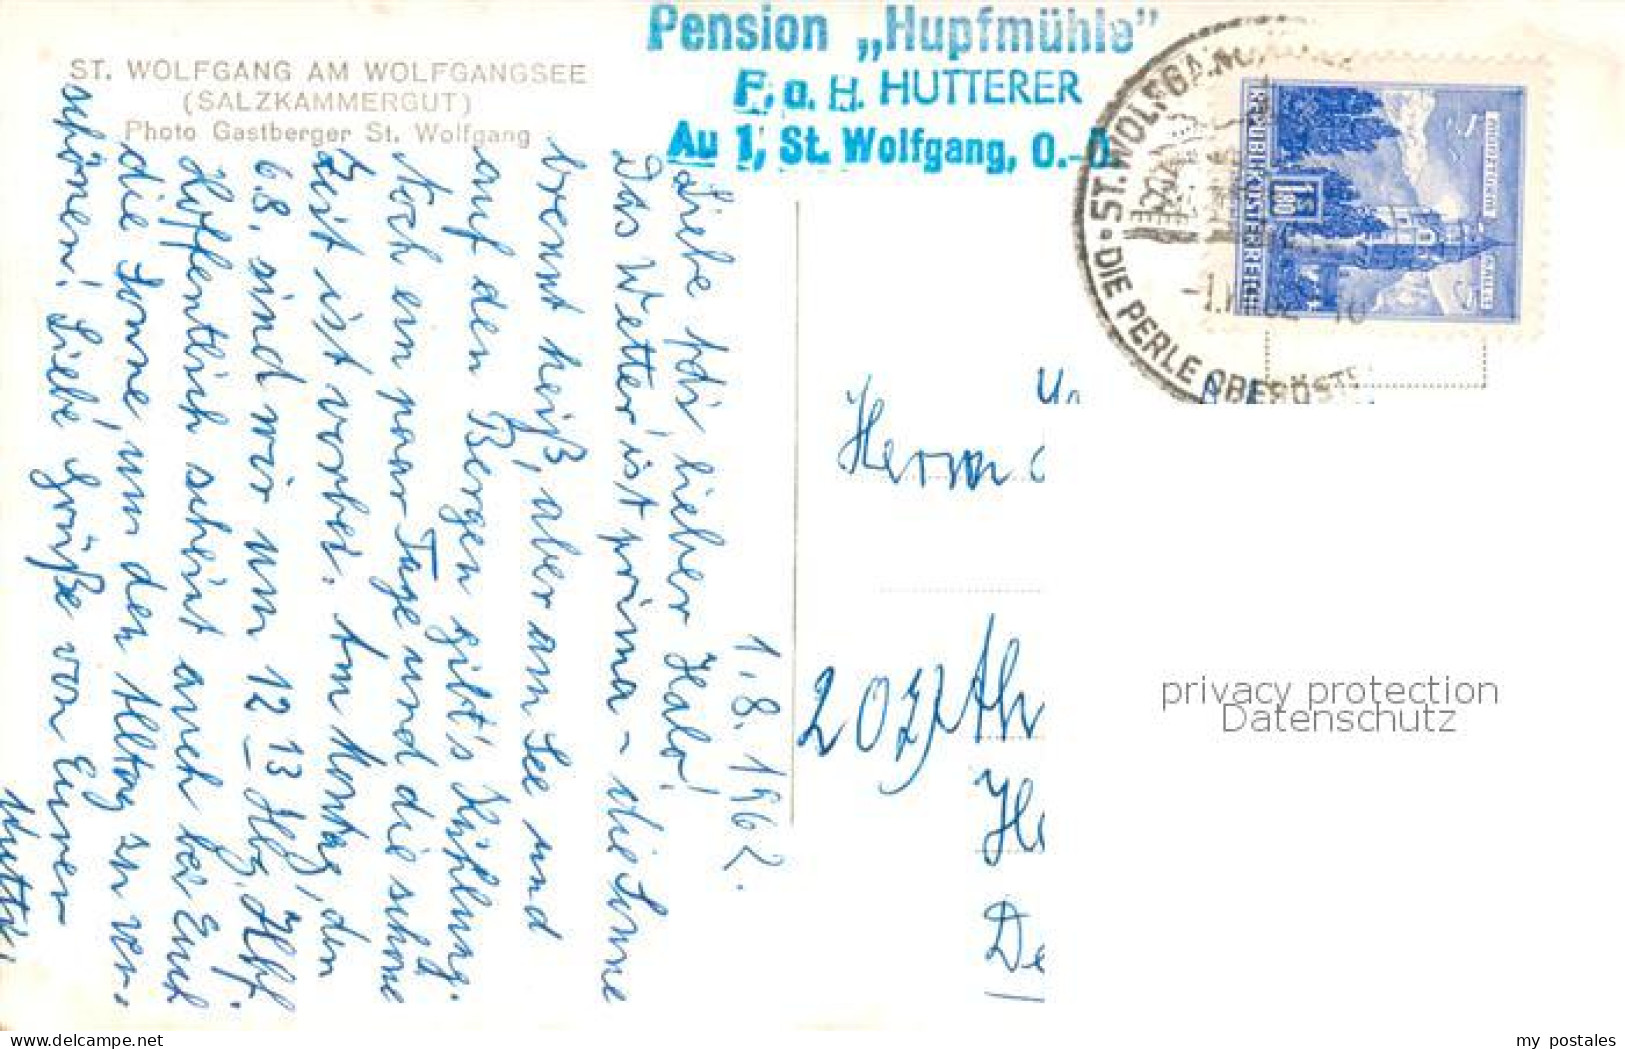 ST. WOLFGANG AM WOLFGANGSEE
(SALZKAMMERGUT)
Photo Gastberger St. Wolfgang
Pension „Hupfmühle"
F. o. H. HUTTERER
Au 1, St. Wolfgang, O.-Ö.
ST. WOLFGANG
DIE PERLE OBERÖST
REPUBLIK ÖSTERREICH
S 1.80
1.8.1962.
Liebe lieber Halo!
Das Wetter ist prima - die Sonne
brennt heiß, aber am See und
auf den Bergen gibt's Kühlung.
Noch ein paar Tage und die schöne
Zeit ist vorbei. Am Montag, den
6.8. sind wir um 12 13 Hbg. Hbf.
Hoffentlich scheint auch bei Euch
die Sonne, um den Alltag zu ver-
schönen! Liebe Grüße von Eurer
Mutti
Herrn
20
Ah
privacy protection
Datenschutz
my postales